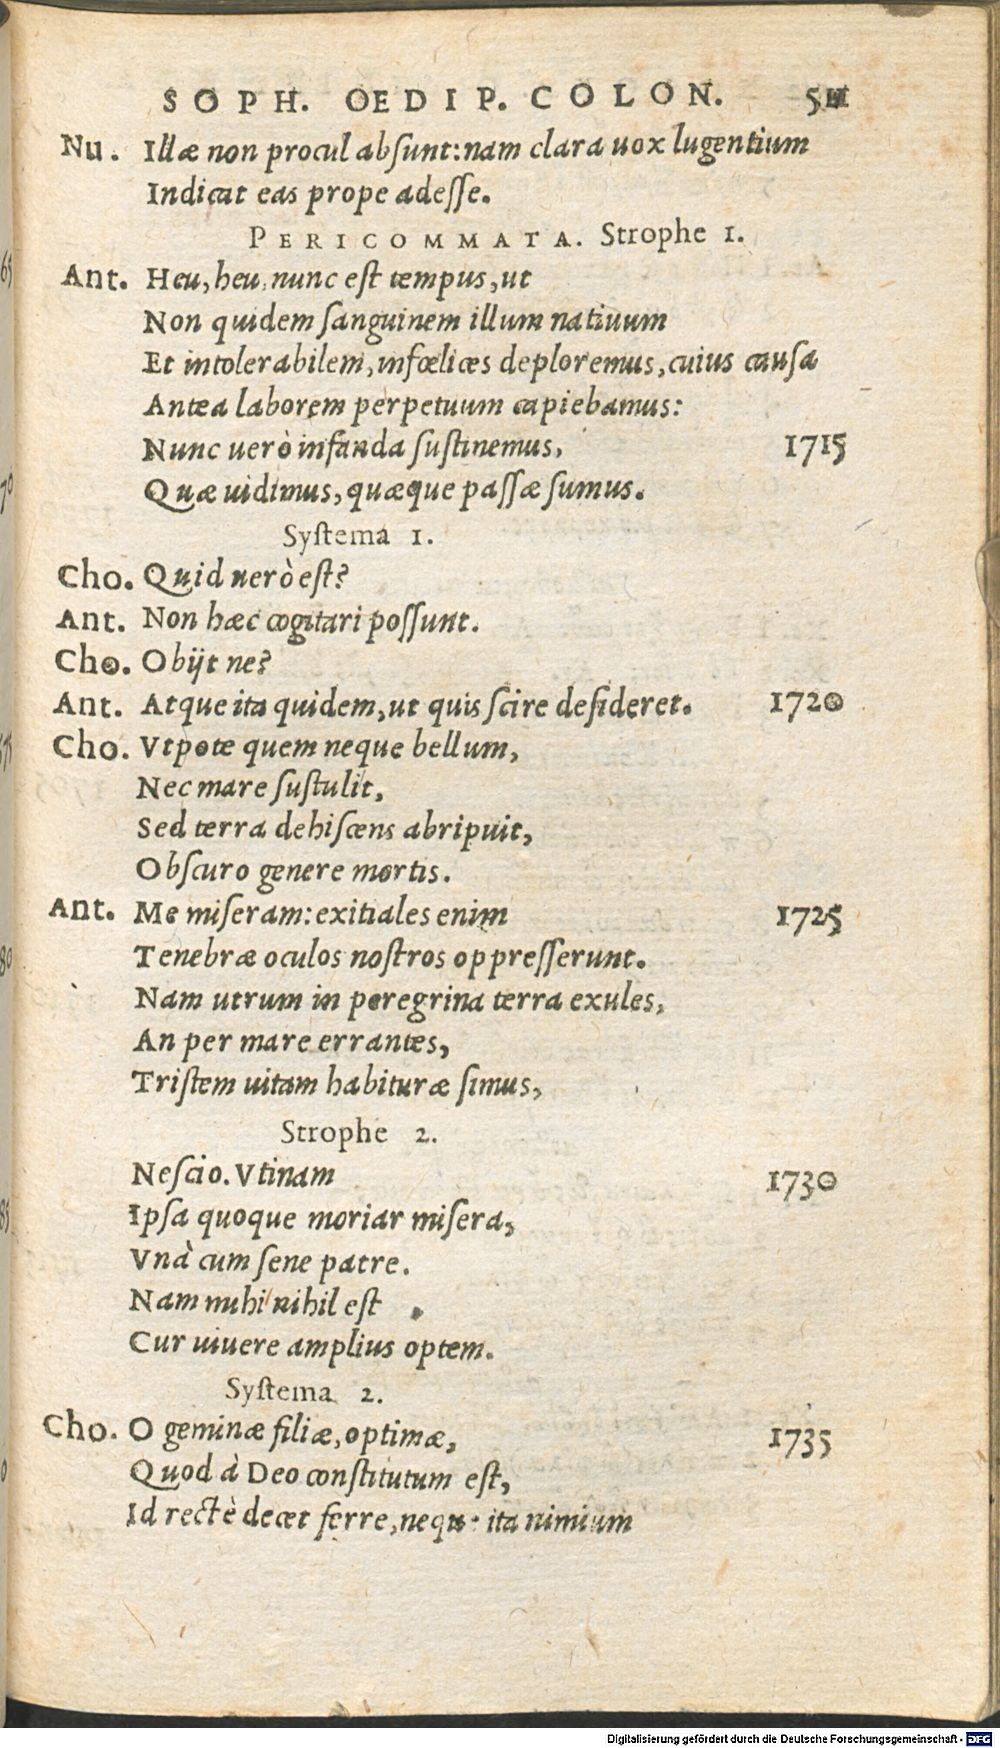 SOPH. OEDIP. COLON. 511
Nu. Illæ non procul absunt: nam clara uox lugentium
Indicat eas prope adesse.
PERICOMMATA. Strophe 1.
Ant. Heu, heu, nunc est tempus, ut
Non quidem sanguinem illum natiuum
Et intolerabilem, infœlices deploremus, cuius causa
Antea laborem perpetuum capiebamus:
Nunc uerò infanda sustinemus, 1715
Quæ uidimus, quæque passæ sumus.
Systema 1.
Cho. Quid uerò est?
Ant. Non hæc cogitari possunt.
Cho. Obijt ne?
Ant. Atque ita quidem, ut quis scire desideret. 1720
Cho. Vtpote quem neque bellum,
Nec mare sustulit,
Sed terra dehiscens abripuit,
Obscuro genere mortis.
Ant. Me miseram: exitiales enim 1725
Tenebræ oculos nostros oppresserunt.
Nam utrum in peregrina terra exules,
An per mare errantes,
Tristem uitam habituræ simus,
Strophe 2.
Nescio. Vtinam 1730
Ipsa quoque moriar misera,
Vnà cum sene patre.
Nam mihi nihil est
Cur uiuere amplius optem.
Systema 2.
Cho. O geminæ filiæ, optimæ, 1735
Quod à Deo constitutum est,
Id rectè decet ferre, neque ita nimium
65
70
80
85
0
Digitalisierung gefördert durch die Deutsche Forschungsgemeinschaft - DFG